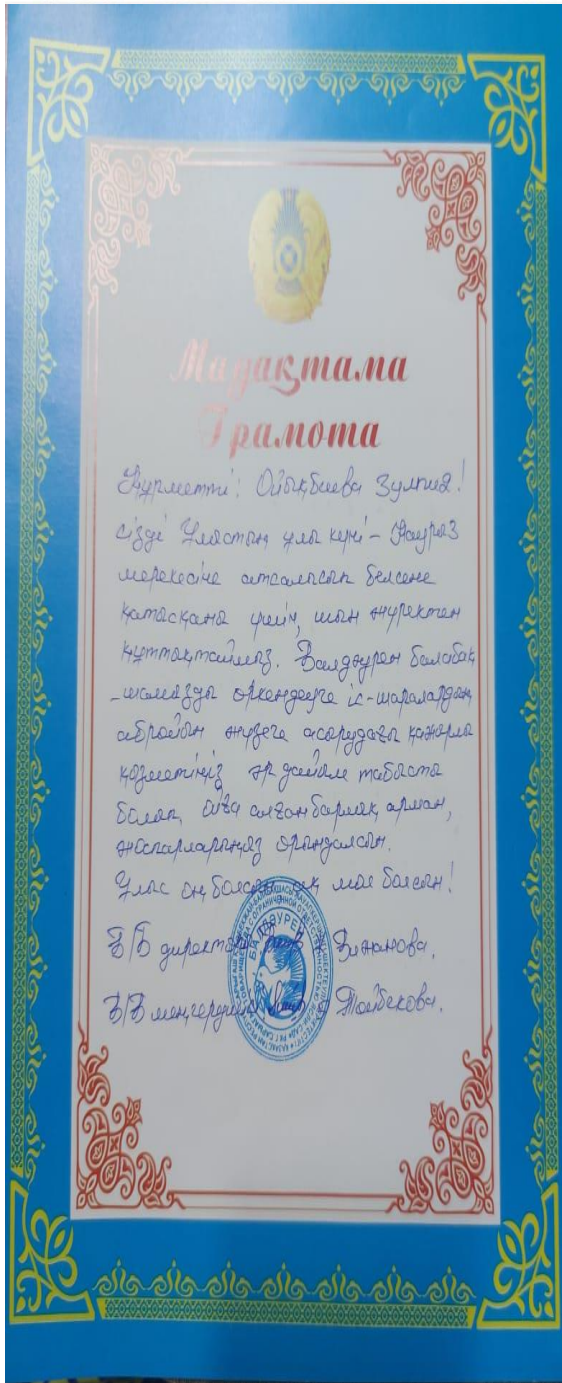 Мадақтама
Грамота
Құрметті: Ойықбаева Зулпия!
сізді Ұлыстың ұлы күні - Наурыз
мерекесіне атсалысып белсене
қатысқаны үшін, шын жүректен
құттықтаймыз. Балдәурен балабақ
-шамызды өркендеуге іс-шаралардың
абройын жүзеге асырудағы қажырлы
қызметіңіз әр дайым табысты
болып, ойға алған барлық арман,
жоспарларыңыз орындалсын.
Ұлыс оң болсын ақ мол болсын!
Б/Б директоры Бижанова.
Б/Б меңгерушісі Тойбекова.
БАЛДӘУРЕН